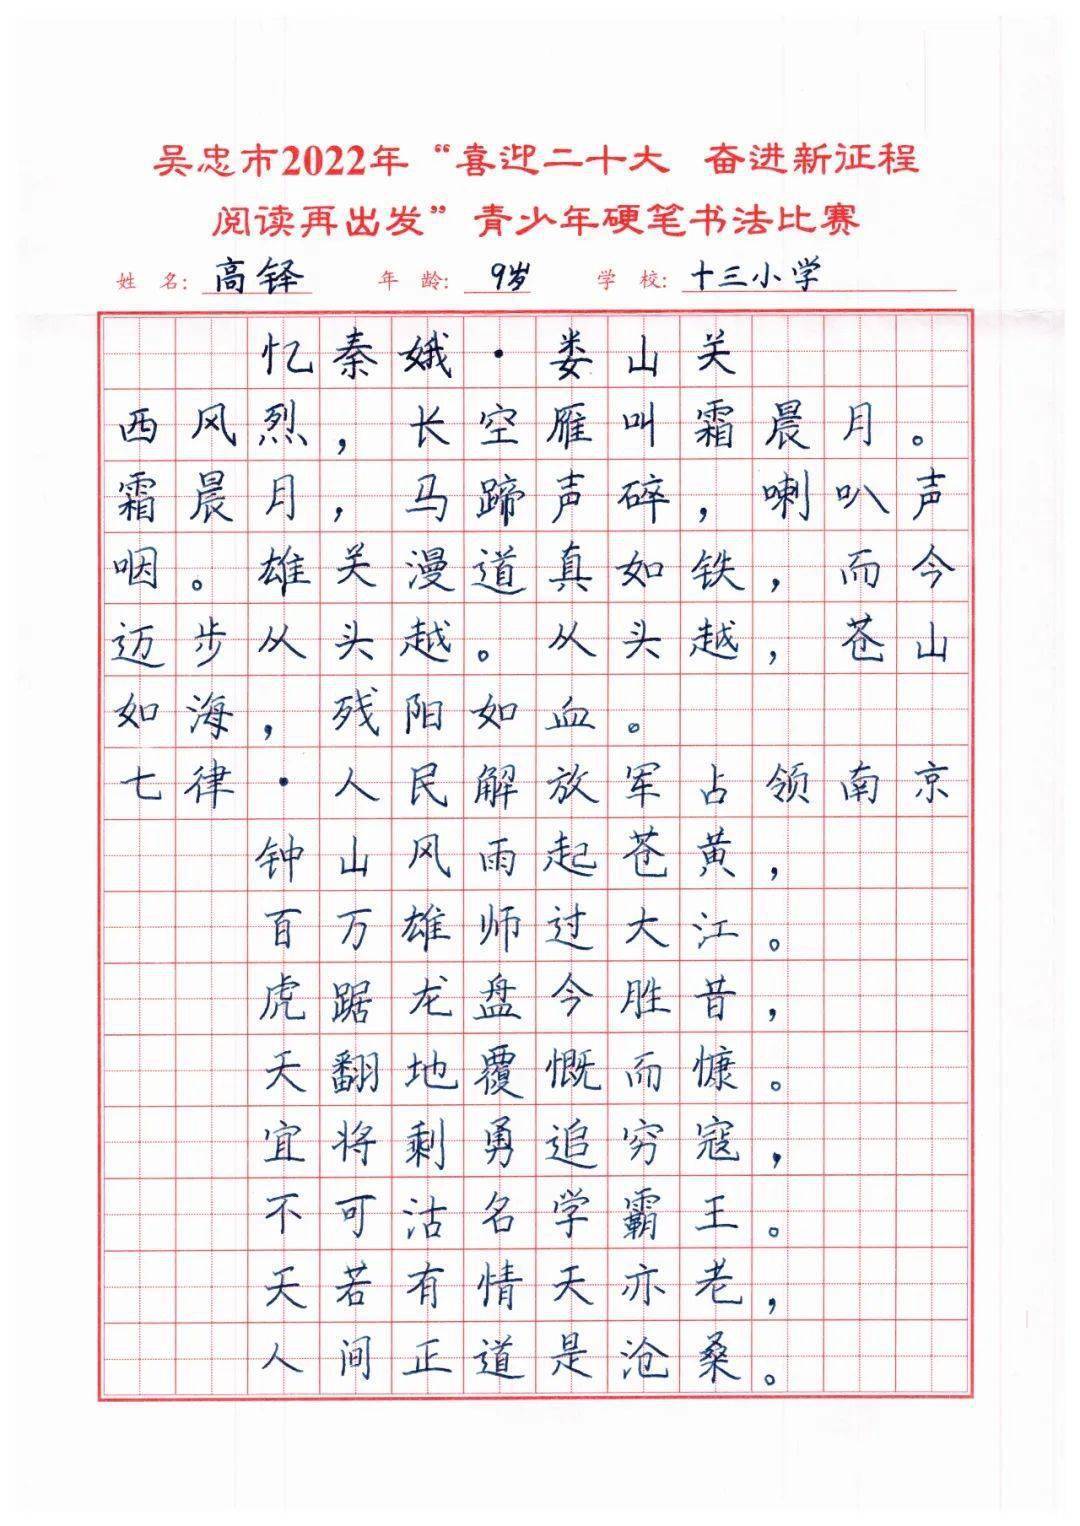 吴忠市2022年“喜迎二十大 奋进新征程
阅读再出发”青少年硬笔书法比赛
姓 名: 高铎 年 龄: 9岁 学 校: 十三小学
忆秦娥·娄山关
西风烈，长空雁叫霜晨月。
霜晨月，马蹄声碎，喇叭声
咽。雄关漫道真如铁，而今
迈步从头越。从头越，苍山
如海，残阳如血。
七律·人民解放军占领南京
钟山风雨起苍黄，
百万雄师过大江。
虎踞龙盘今胜昔，
天翻地覆慨而慷。
宜将剩勇追穷寇，
不可沽名学霸王。
天若有情天亦老，
人间正道是沧桑。